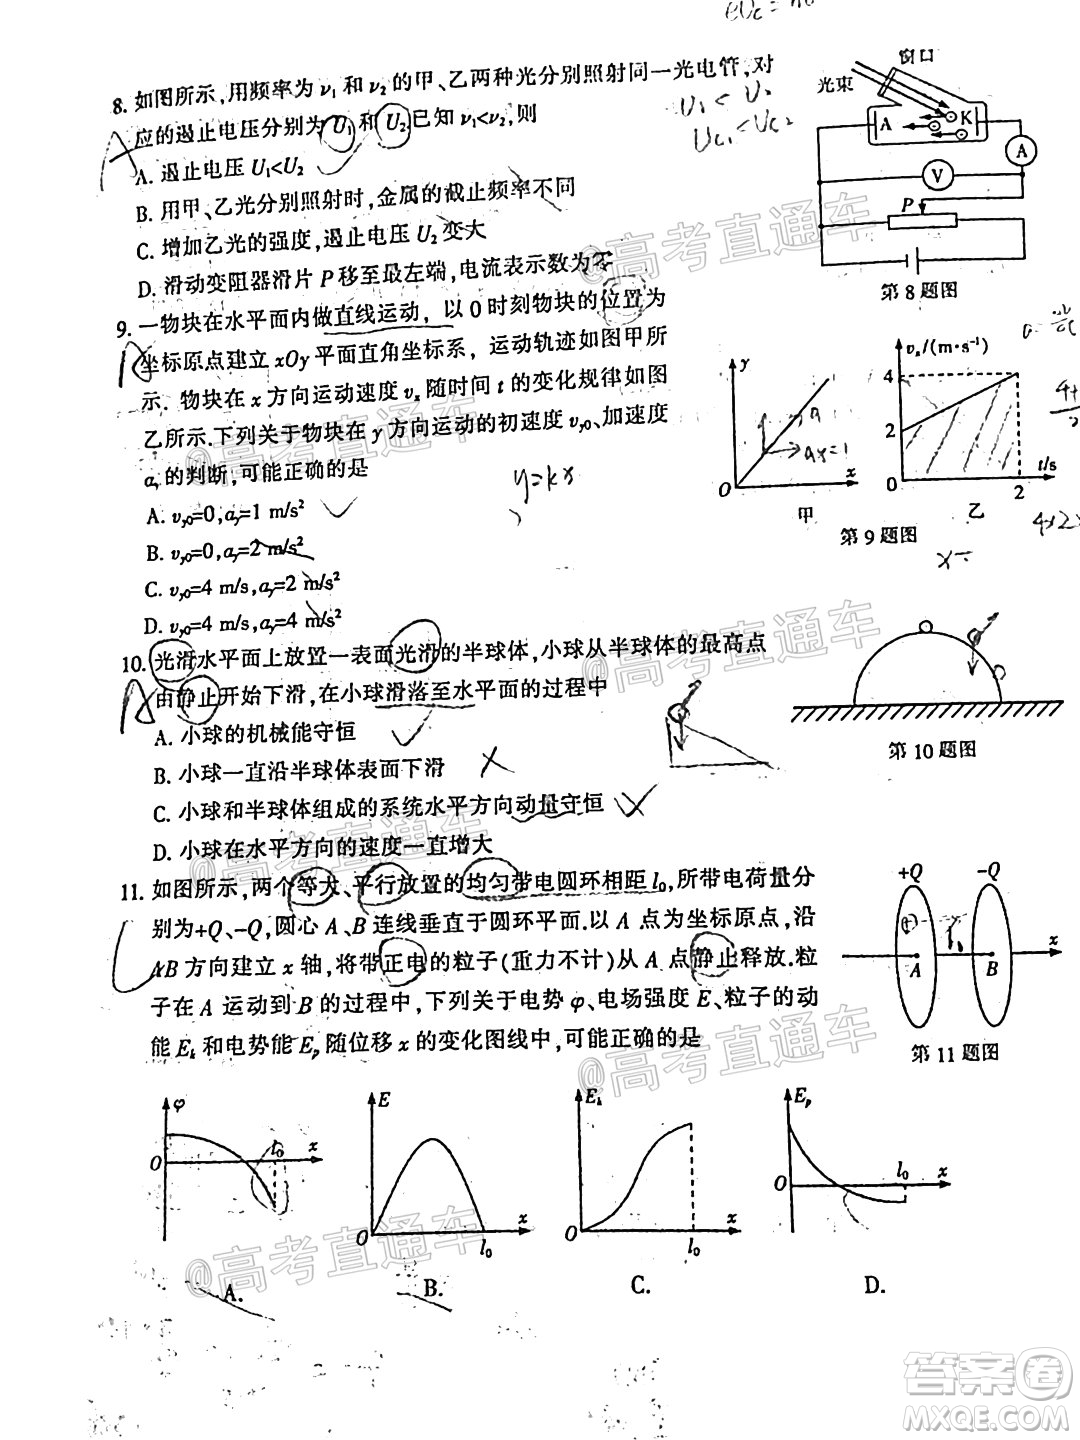 8. 如图所示,用频率为 ν₁ 和 ν₂ 的甲、乙两种光分别照射同一光电管,对
应的遏止电压分别为 U₁ 和 U₂.已知 ν₁<ν₂,则
A. 遏止电压 U₁<U₂
B. 用甲、乙光分别照射时,金属的截止频率不同
C. 增加乙光的强度,遏止电压 U₂ 变大
D. 滑动变阻器滑片 P 移至最左端,电流表示数为零
U₁ <
Uc₁ < Uc₂
光束
窗口
A
K
A
V
P
第 8 题图
9. 一物块在水平面内做直线运动,以 0 时刻物块的位置为
坐标原点建立 xOy 平面直角坐标系,运动轨迹如图甲所
示. 物块在 x 方向运动速度 vₓ 随时间 t 的变化规律如图
乙所示.下列关于物块在 y 方向运动的初速度 vy0、加速度
ay 的判断,可能正确的是
A. vy0=0,ay=1 m/s²
B. vy0=0,ay=2 m/s²
C. vy0=4 m/s,ay=2 m/s²
D. vy0=4 m/s,ay=4 m/s²
y=kx
y
a
ax=1
O
x
甲
vₓ/(m·s⁻¹)
4
2
0
2
t/s
乙
第 9 题图
10. 光滑水平面上放置一表面光滑的半球体,小球从半球体的最高点
由静止开始下滑,在小球滑落至水平面的过程中
A. 小球的机械能守恒
B. 小球一直沿半球体表面下滑
C. 小球和半球体组成的系统水平方向动量守恒
D. 小球在水平方向的速度一直增大
第 10 题图
11. 如图所示,两个等大、平行放置的均匀带电圆环相距 l₀,所带电荷量分
别为+Q、-Q,圆心 A、B 连线垂直于圆环平面.以 A 点为坐标原点,沿
AB 方向建立 x 轴,将带正电的粒子(重力不计)从 A 点静止释放.粒
子在 A 运动到 B 的过程中,下列关于电势 φ、电场强度 E、粒子的动
能 Eₖ 和电势能 Eₚ 随位移 x 的变化图线中,可能正确的是
+Q
-Q
A
B
x
第 11 题图
φ
O
l₀
x
A.
E
O
l₀
x
B.
Eₖ
O
l₀
x
C.
Eₚ
O
l₀
x
D.
@高考直通车
@高考直通车
@高考直通车
@高考直通车
@高考直通车
@高考直通车
@高考直通车
答案圈
MXQE.COM